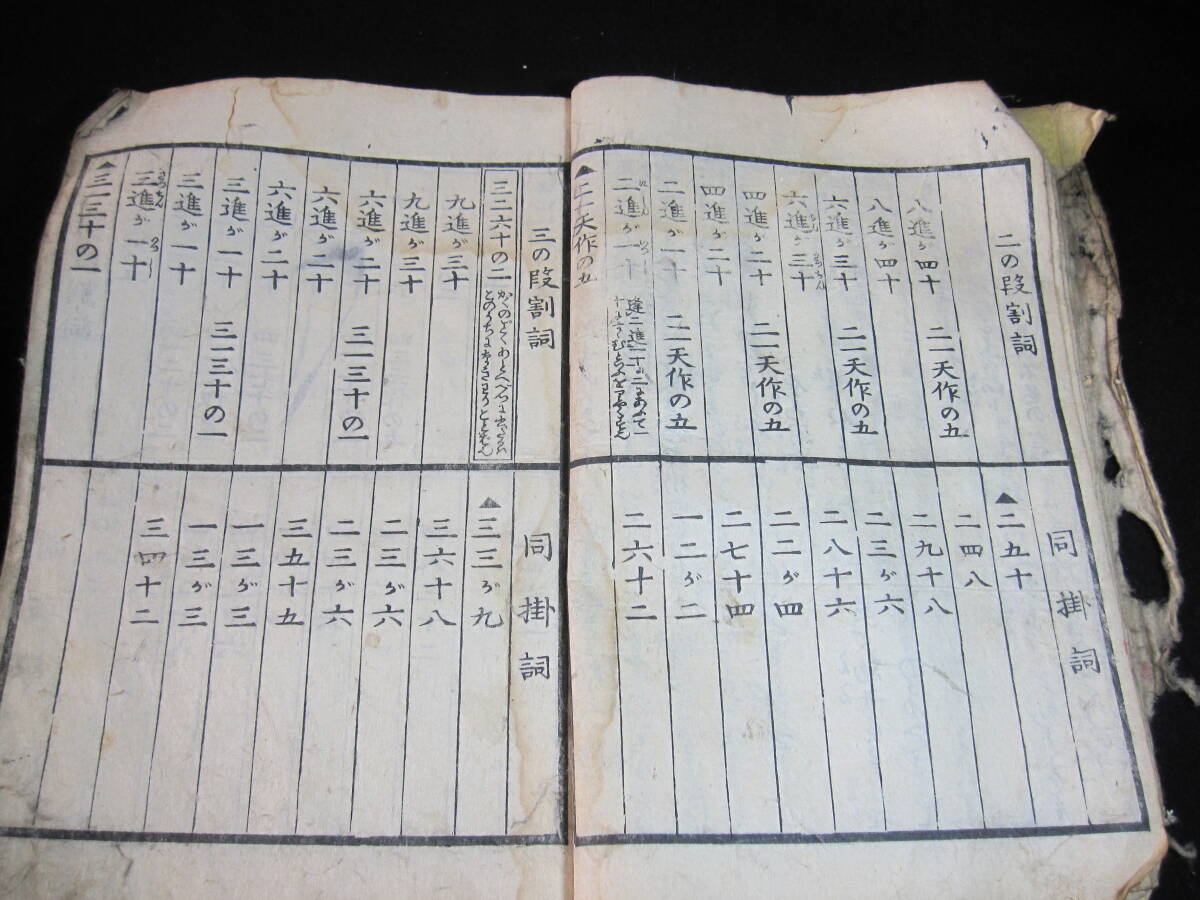 二の段割詞
八進ガ四十 二一天作の五
八進ガ四十
六進ガ三十 二一天作の五
六進ガ三十
四進ガ二十 二一天作の五
四進ガ二十
二進ガ一十 二一天作の五
二進ガ一十
▲二一天作の五
同掛詞
▲二五十
二四八
二九十八
二三ガ六
二八十六
二二ガ四
二七十四
一二ガ二
二六十二
三の段割詞
三二六十の二
九進ガ三十
九進ガ三十
六進ガ二十 三一三十の一
六進ガ二十
六進ガ二十
三進ガ一十 三一三十の一
三進ガ一十
三進ガ一十
▲三一三十の一
同掛詞
▲三三ガ九
三六十八
二三ガ六
二三ガ六
三五十五
一三ガ三
一三ガ三
三四十二